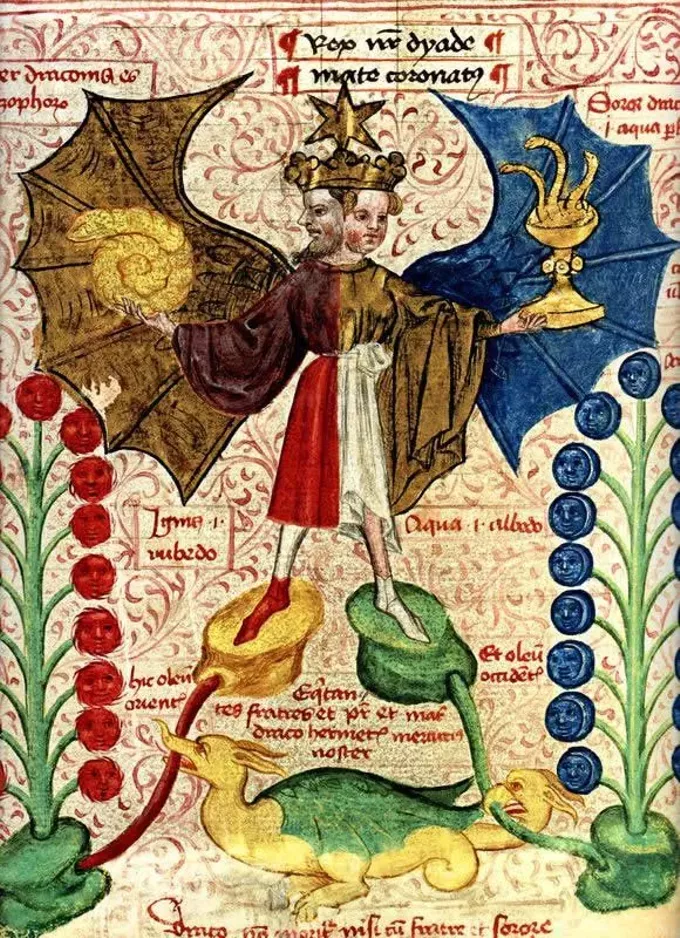 ¶ Rex nr dyade ¶
¶ mate coronatꝰ ¶
er draconis es
Soror drac
i aqua
Ignis .i.
rubedo
Aqua .i. albedo
hic oleū
orient
Et oleū
occidēt
tes fratres et pr et mar
draco hermet mercuriꝰ
noster
Draco nō morit nisi cū fratre et sorore